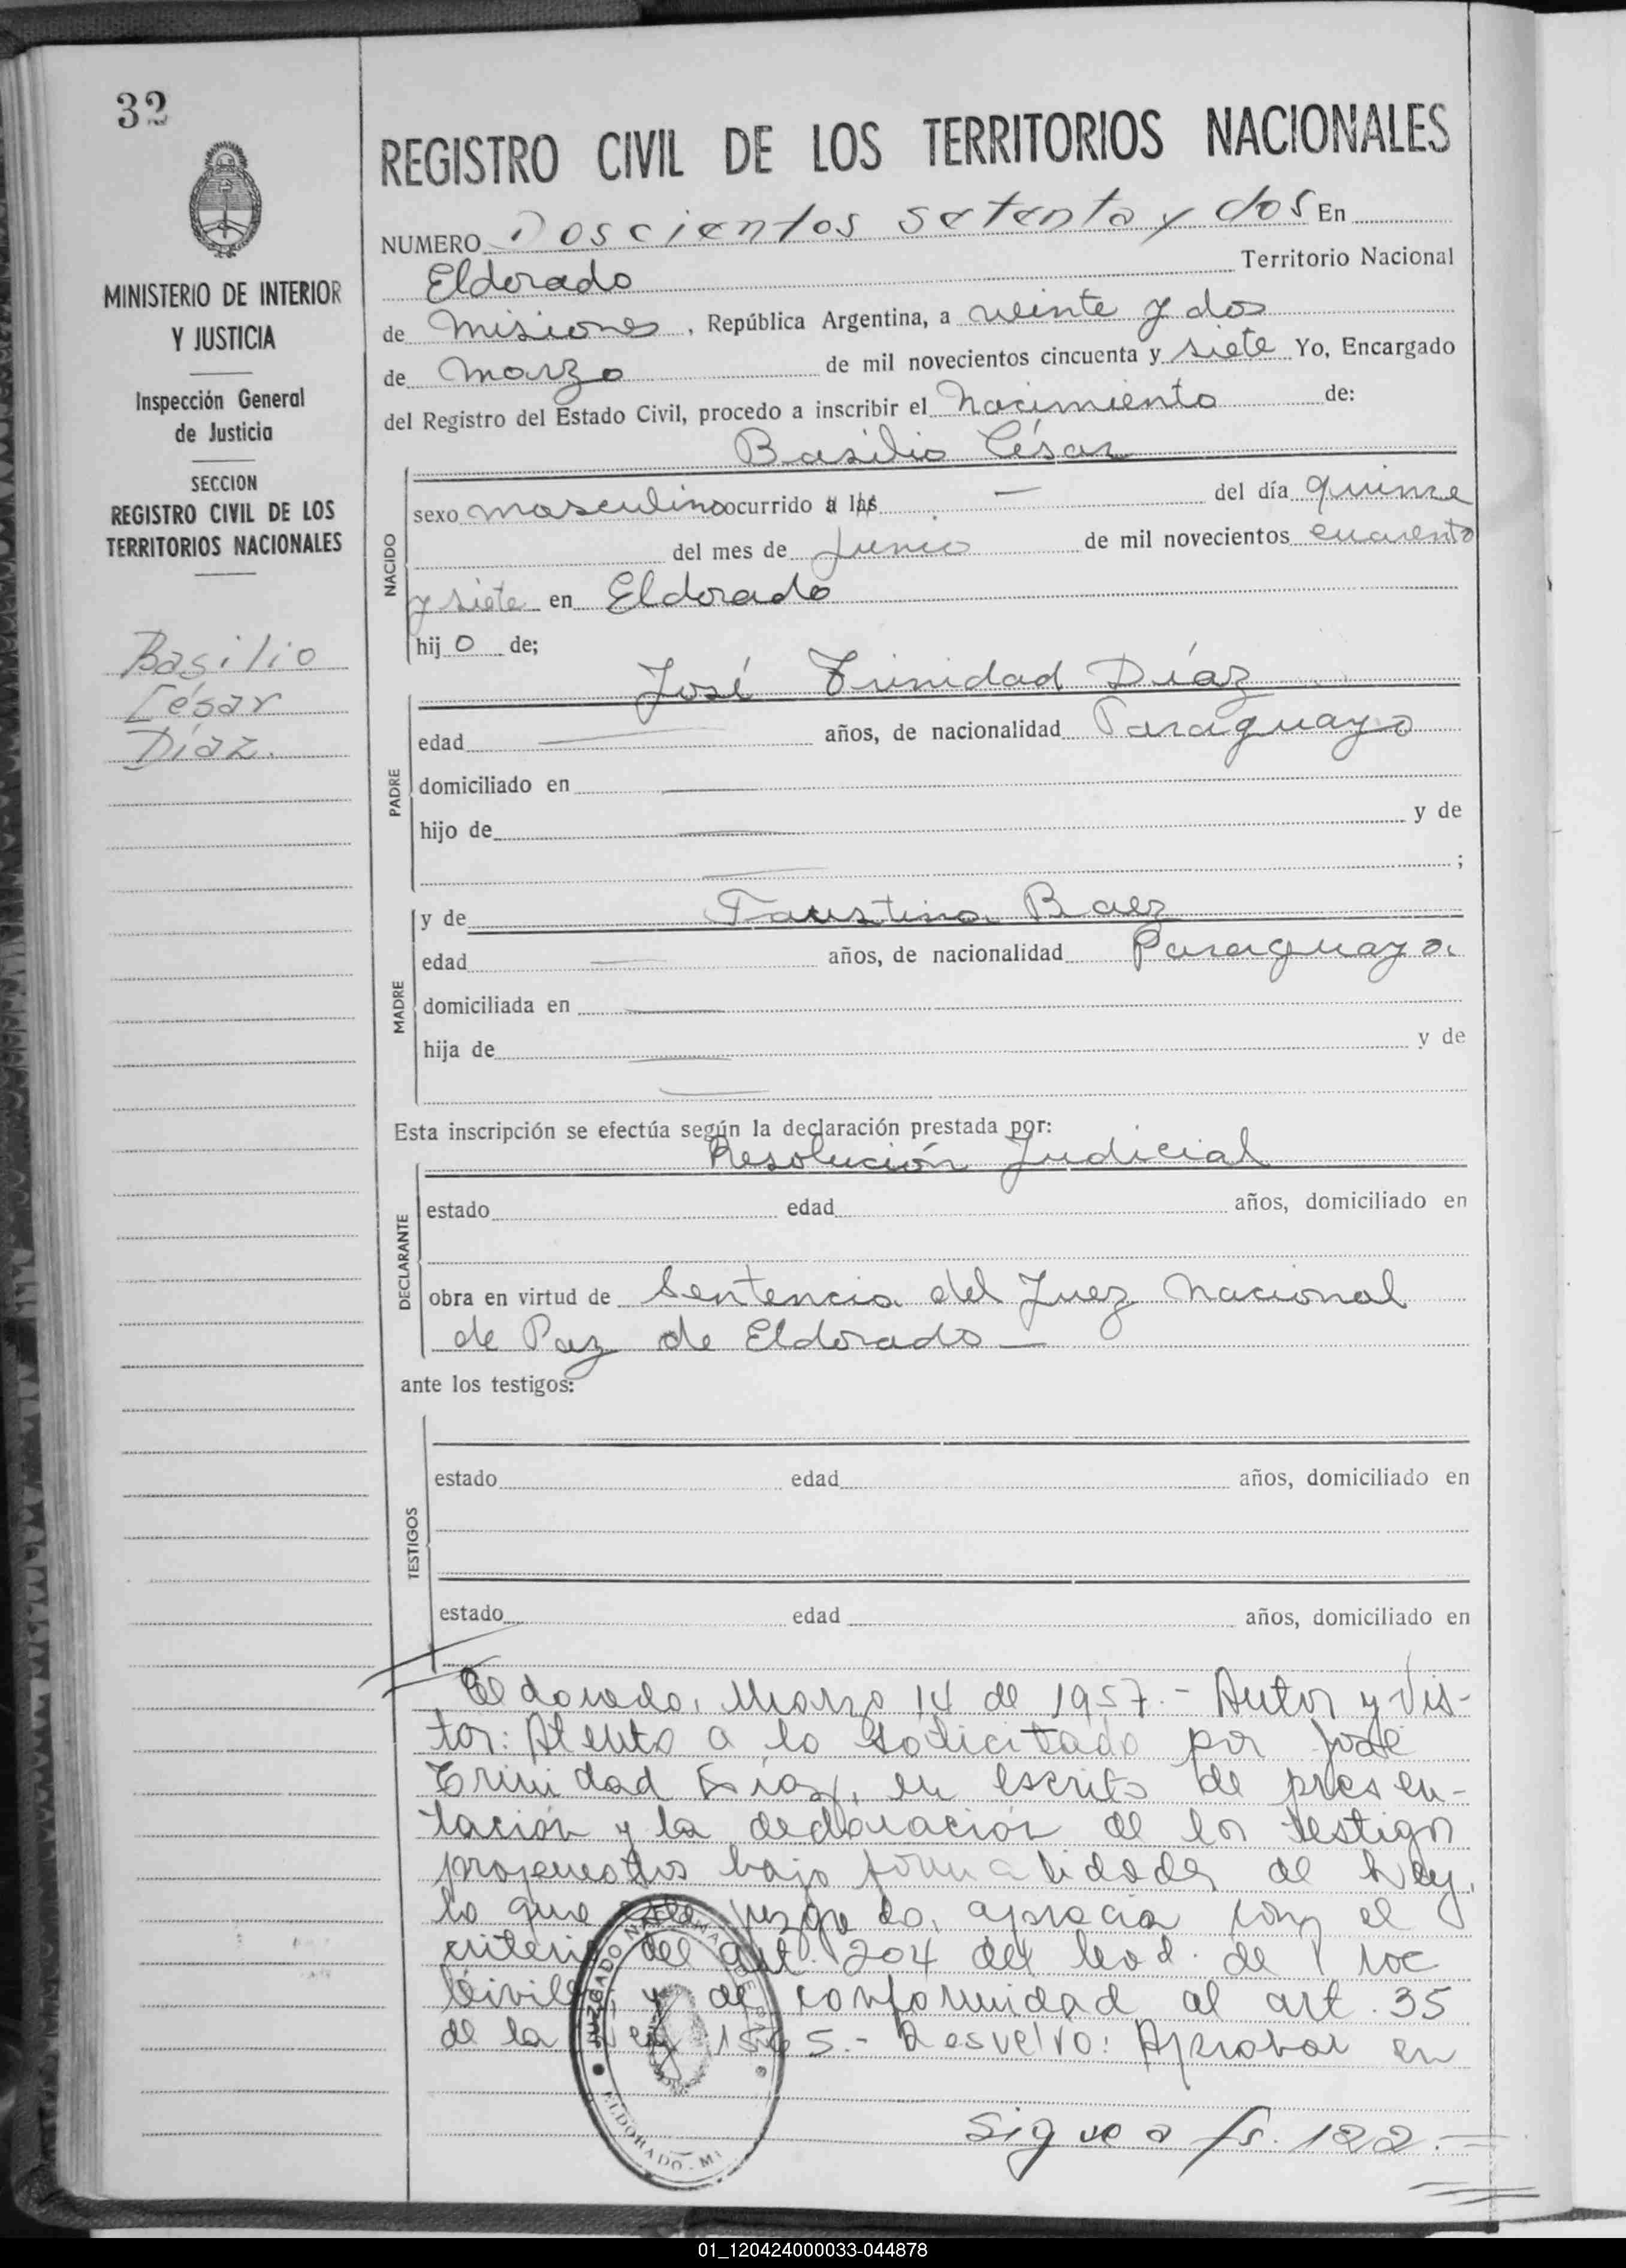 32
MINISTERIO DE INTERIOR
Y JUSTICIA
Inspección General
de Justicia
SECCION
REGISTRO CIVIL DE LOS
TERRITORIOS NACIONALES
Basilio
César
Díaz.
REGISTRO CIVIL DE LOS TERRITORIOS NACIONALES
NUMERO Doscientos setenta y dos En
Eldorado Territorio Nacional
de Misiones, República Argentina, a veinte y dos
de Marzo de mil novecientos cincuenta y siete Yo, Encargado
del Registro del Estado Civil, procedo a inscribir el Nacimiento de:
Basilio César
NACIDO
sexo masculino ocurrido a las — del día quince
del mes de Junio de mil novecientos cuarenta
y siete en Eldorado
hij o de;
José Trinidad Díaz
PADRE
edad — años, de nacionalidad Paraguayo
domiciliado en —
hijo de — y de
— ;
MADRE
y de Faustina Baez
edad — años, de nacionalidad Paraguaya
domiciliada en —
hija de — y de
—
Esta inscripción se efectúa según la declaración prestada por:
Resolución Judicial
DECLARANTE
estado edad años, domiciliado en
obra en virtud de Sentencia del Juez Nacional
de Paz de Eldorado —
ante los testigos:
TESTIGOS
estado edad años, domiciliado en
estado edad años, domiciliado en
Eldorado, Marzo 14 de 1957.- Autos y Vis-
tos: Atento a lo solicitado por José
Trinidad Díaz, en escrito de presen-
tación y la declaración de los testigos
propuestos bajo formalidades de Ley,
lo que este juzgado, aprecia con el
criterio del art. 204 del Cod. de Proc
Civiles, y de conformidad al art. 35
de la Ley 1565.- Resuelvo: Aprobar en
JUZGADO NACIONAL DE PAZ
ELDORADO - Mi
Sigue a fs. 122.=
01_120424000033-044878